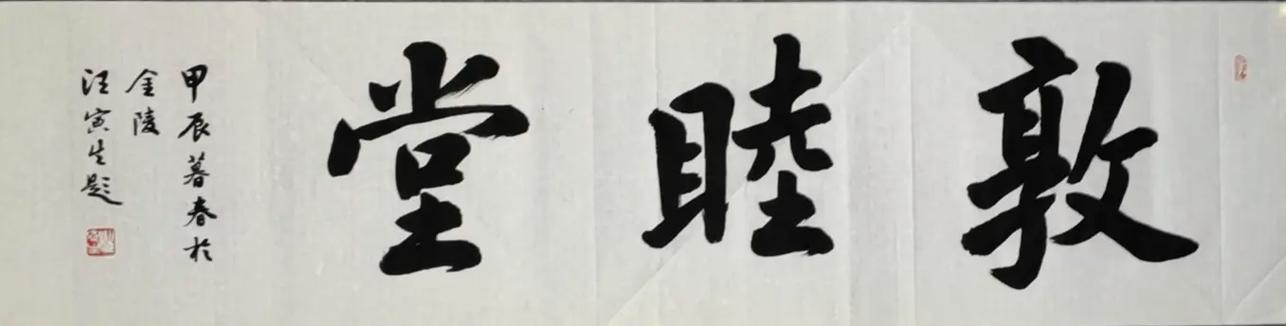 敦睦堂
甲辰暮春於
金陵
汪寅生题